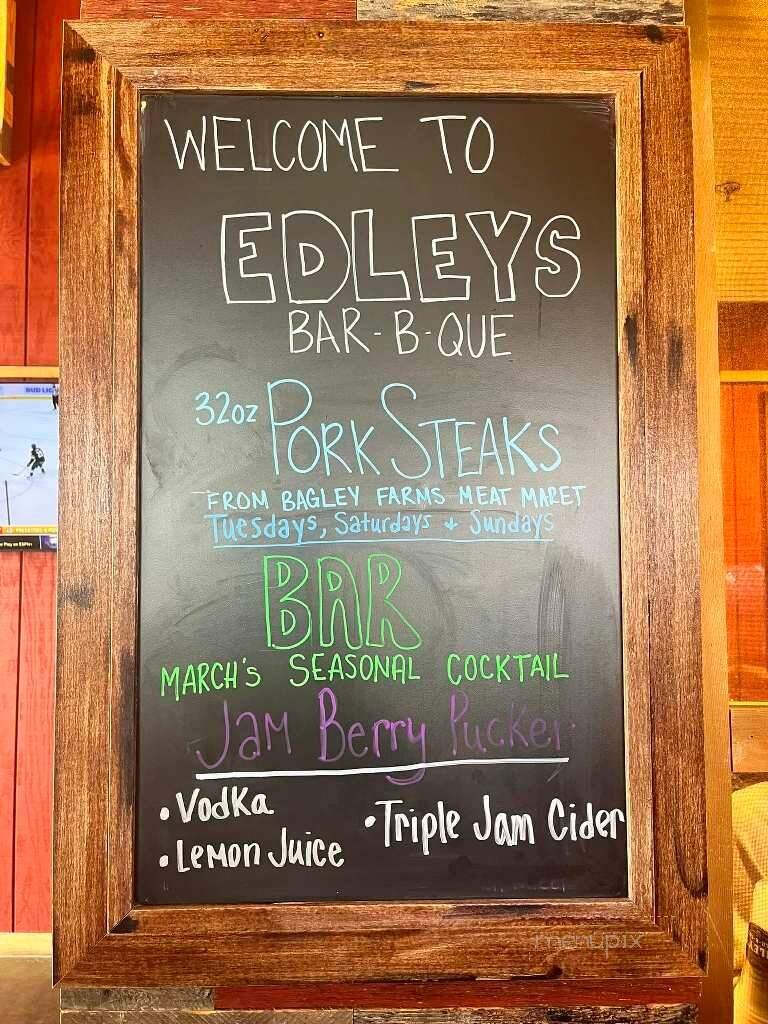 WELCOME TO
EDLEYS
BAR-B-QUE
32oz PORK STEAKS
FROM BAGLEY FARMS MEAT MARET
Tuesdays, Saturdays + Sundays
BAR
MARCH'S SEASONAL COCKTAIL
Jam Berry Pucker
• Vodka
• Lemon Juice
• Triple Jam Cider
BUD LIG
menupix